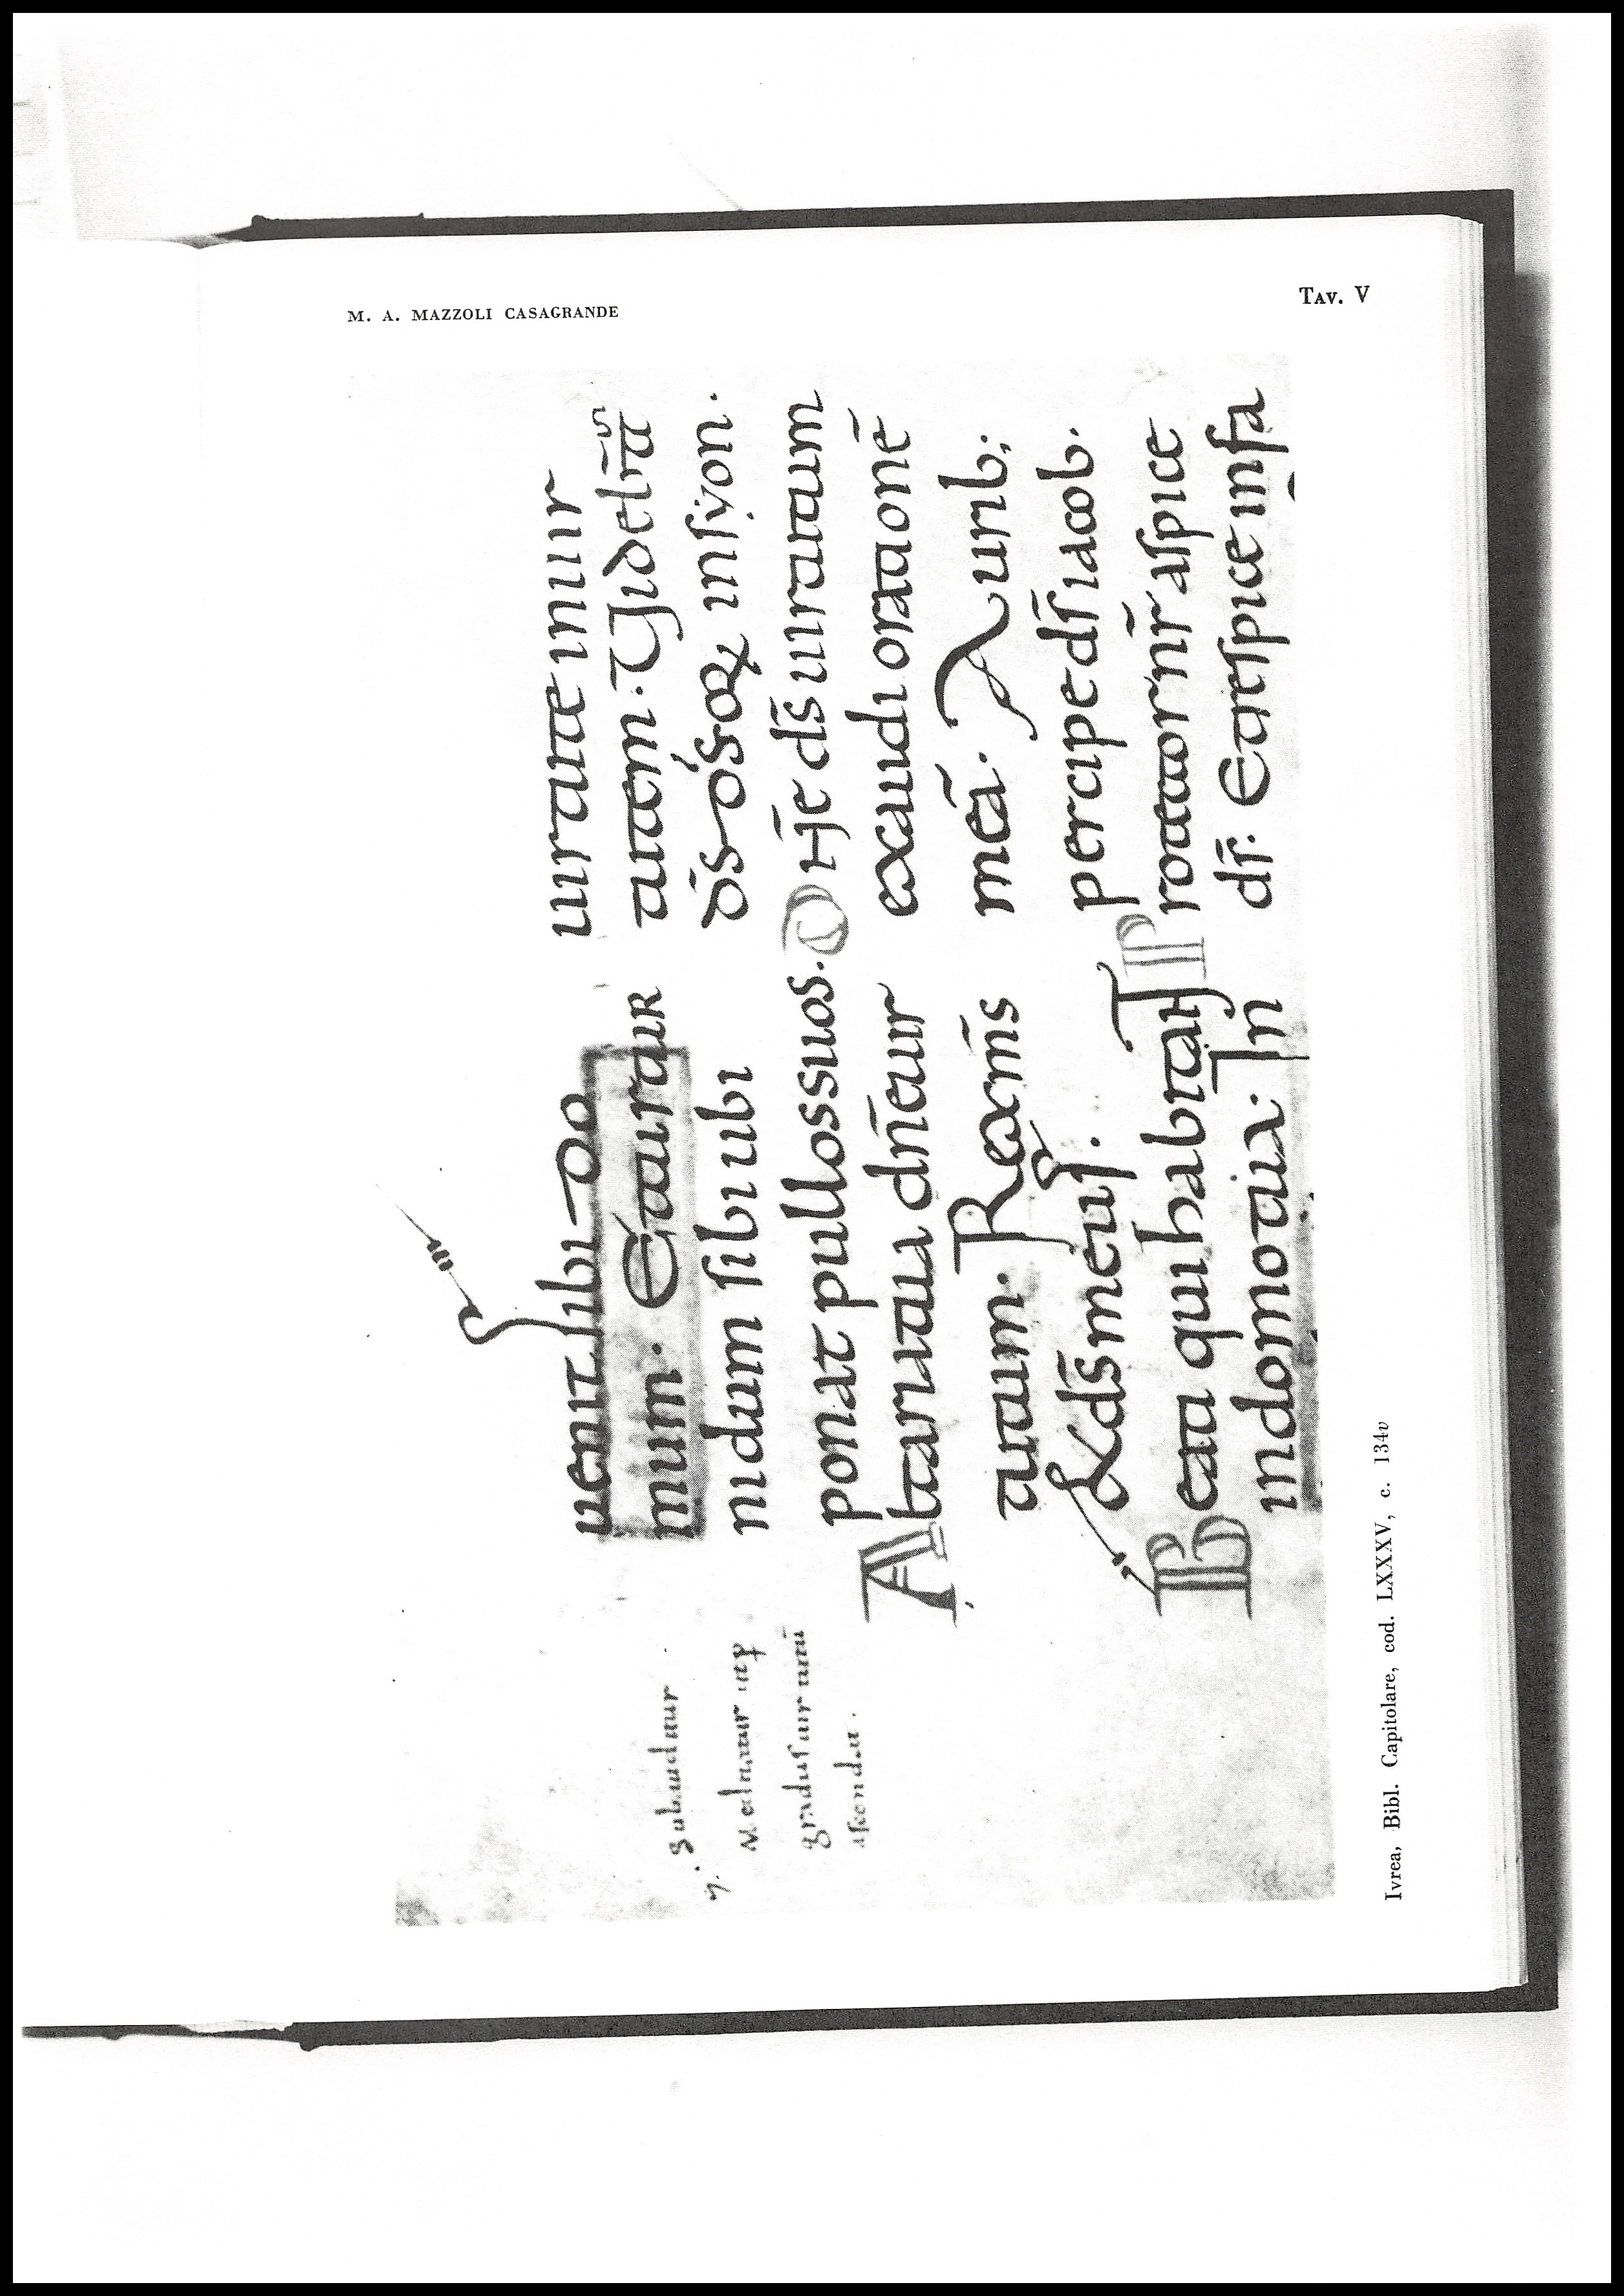 M. A. MAZZOLI CASAGRANDE
TAV. V
Subauditur
gradus
uenit sibi do
mum. Et turtur
nidum sibi ubi
ponat pullos suos.
Altaria tua dn̄e uir
tutum. Rex m̄s
& d̄s meus.
Beati qui habitant
in domo tua: In
uirtute in uir
tutem. Uidebit̄
d̄s in syon.
d̄s uirtutum
exaudi orationē
meā. Aurib;
percipe d̄s iacob.
Protector nr̄ aspice
d̄s. Et respice in fa
Ivrea, Bibl. Capitolare, cod. LXXXV, c. 134v